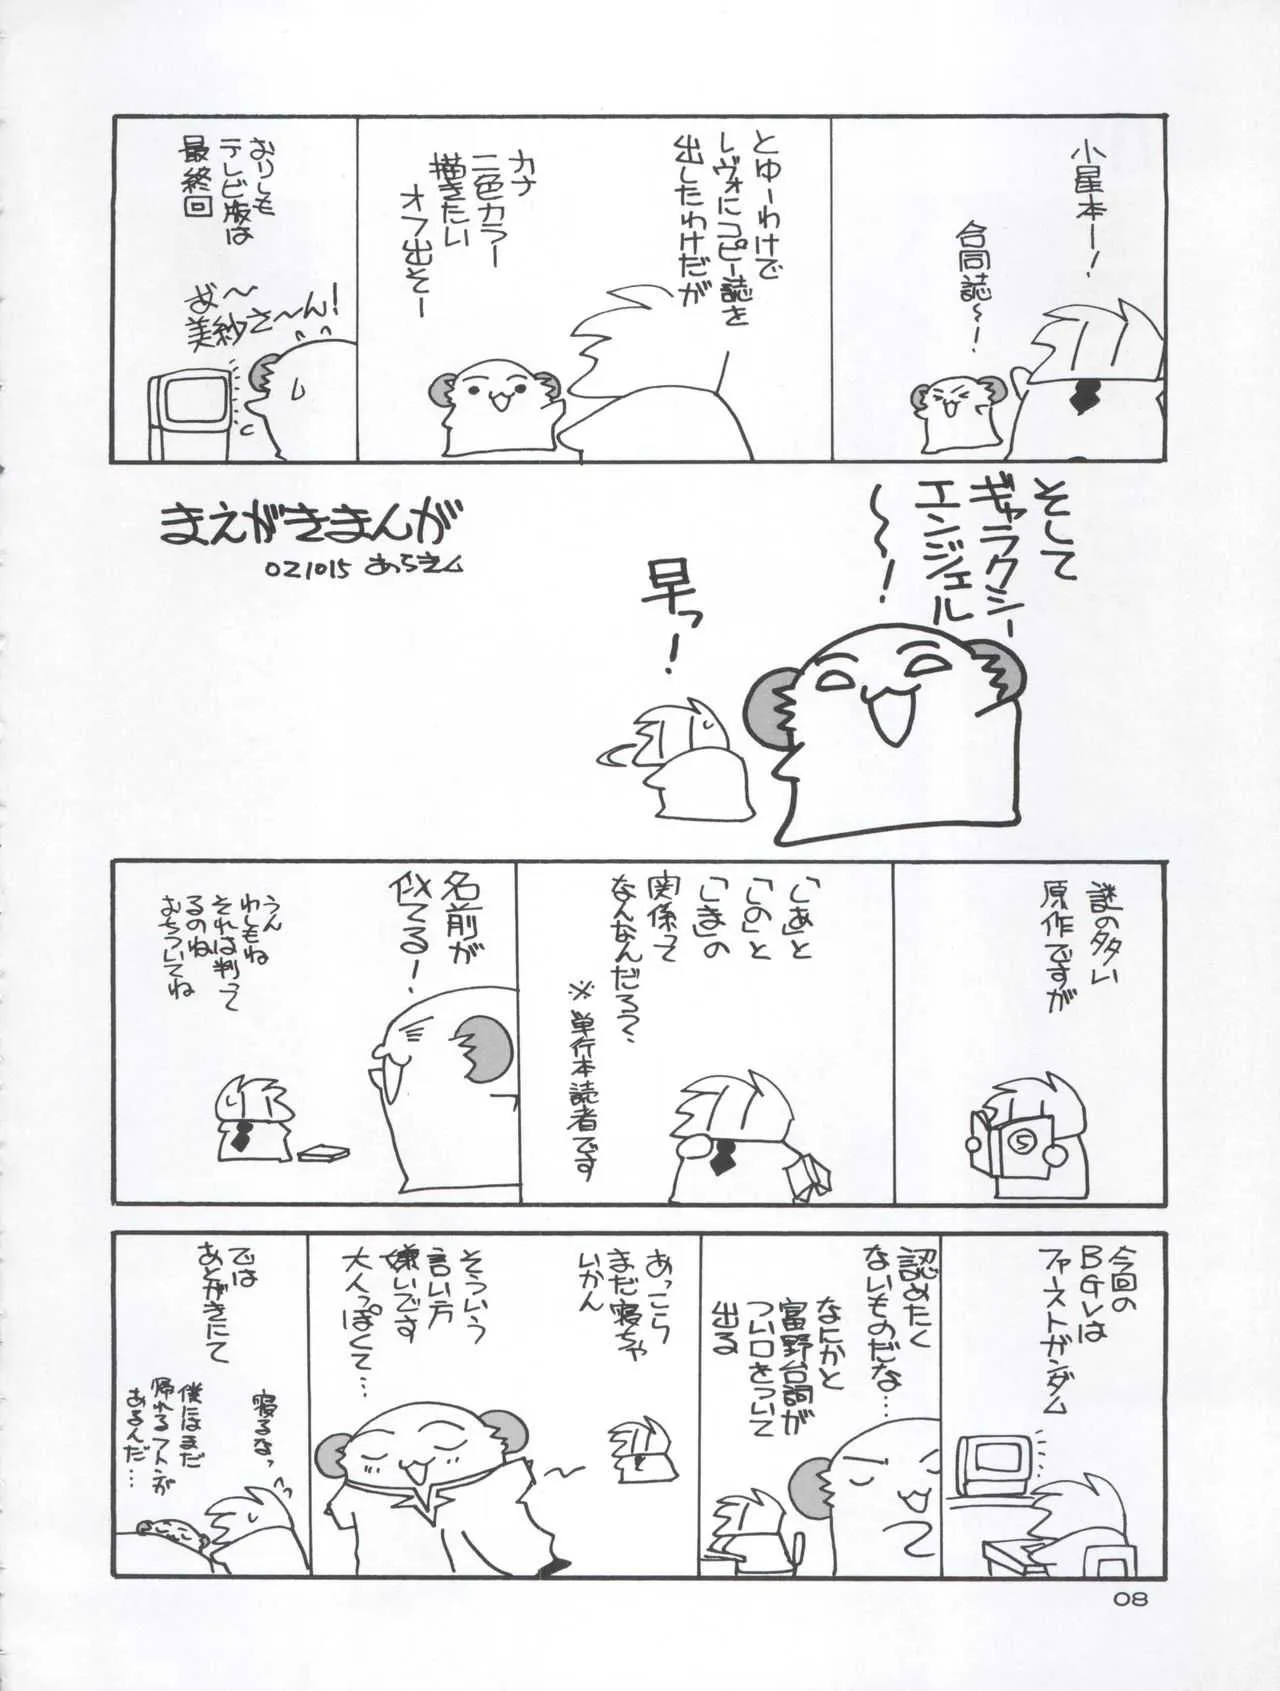 小星本ー!
合同誌～!
とゆーわけで
レヴォにコピー誌を
出したわけだが
カナ
二色カラー
描きたい
オフ出そー
おりしも
テレビ版は
最終回
あ～
美紗さ～ん!
まえがきまんが
021015 あらえム
そして
ギャラクシー
エンジェル
～!
早っ!
謎の多い
原作ですが
「しあ」と
「しの」と
「しま」の
関係って
なんなんだろ?
※単行本読者です
名前が
似てる!
うん
わしもね
それは判って
るのね
おちついてね
5
今回の
BGVは
ファーストガンダム
認めたく
ないものだな…
なにかと
富野台詞が
つい口をついて
出る
あっこら
まだ寝ちゃ
いかん
そういう
言い方
嫌いです
大人っぽくて…
では
あとがきにて
寝るなっ
僕にはまだ
帰れるフトンが
あるんだ…
08